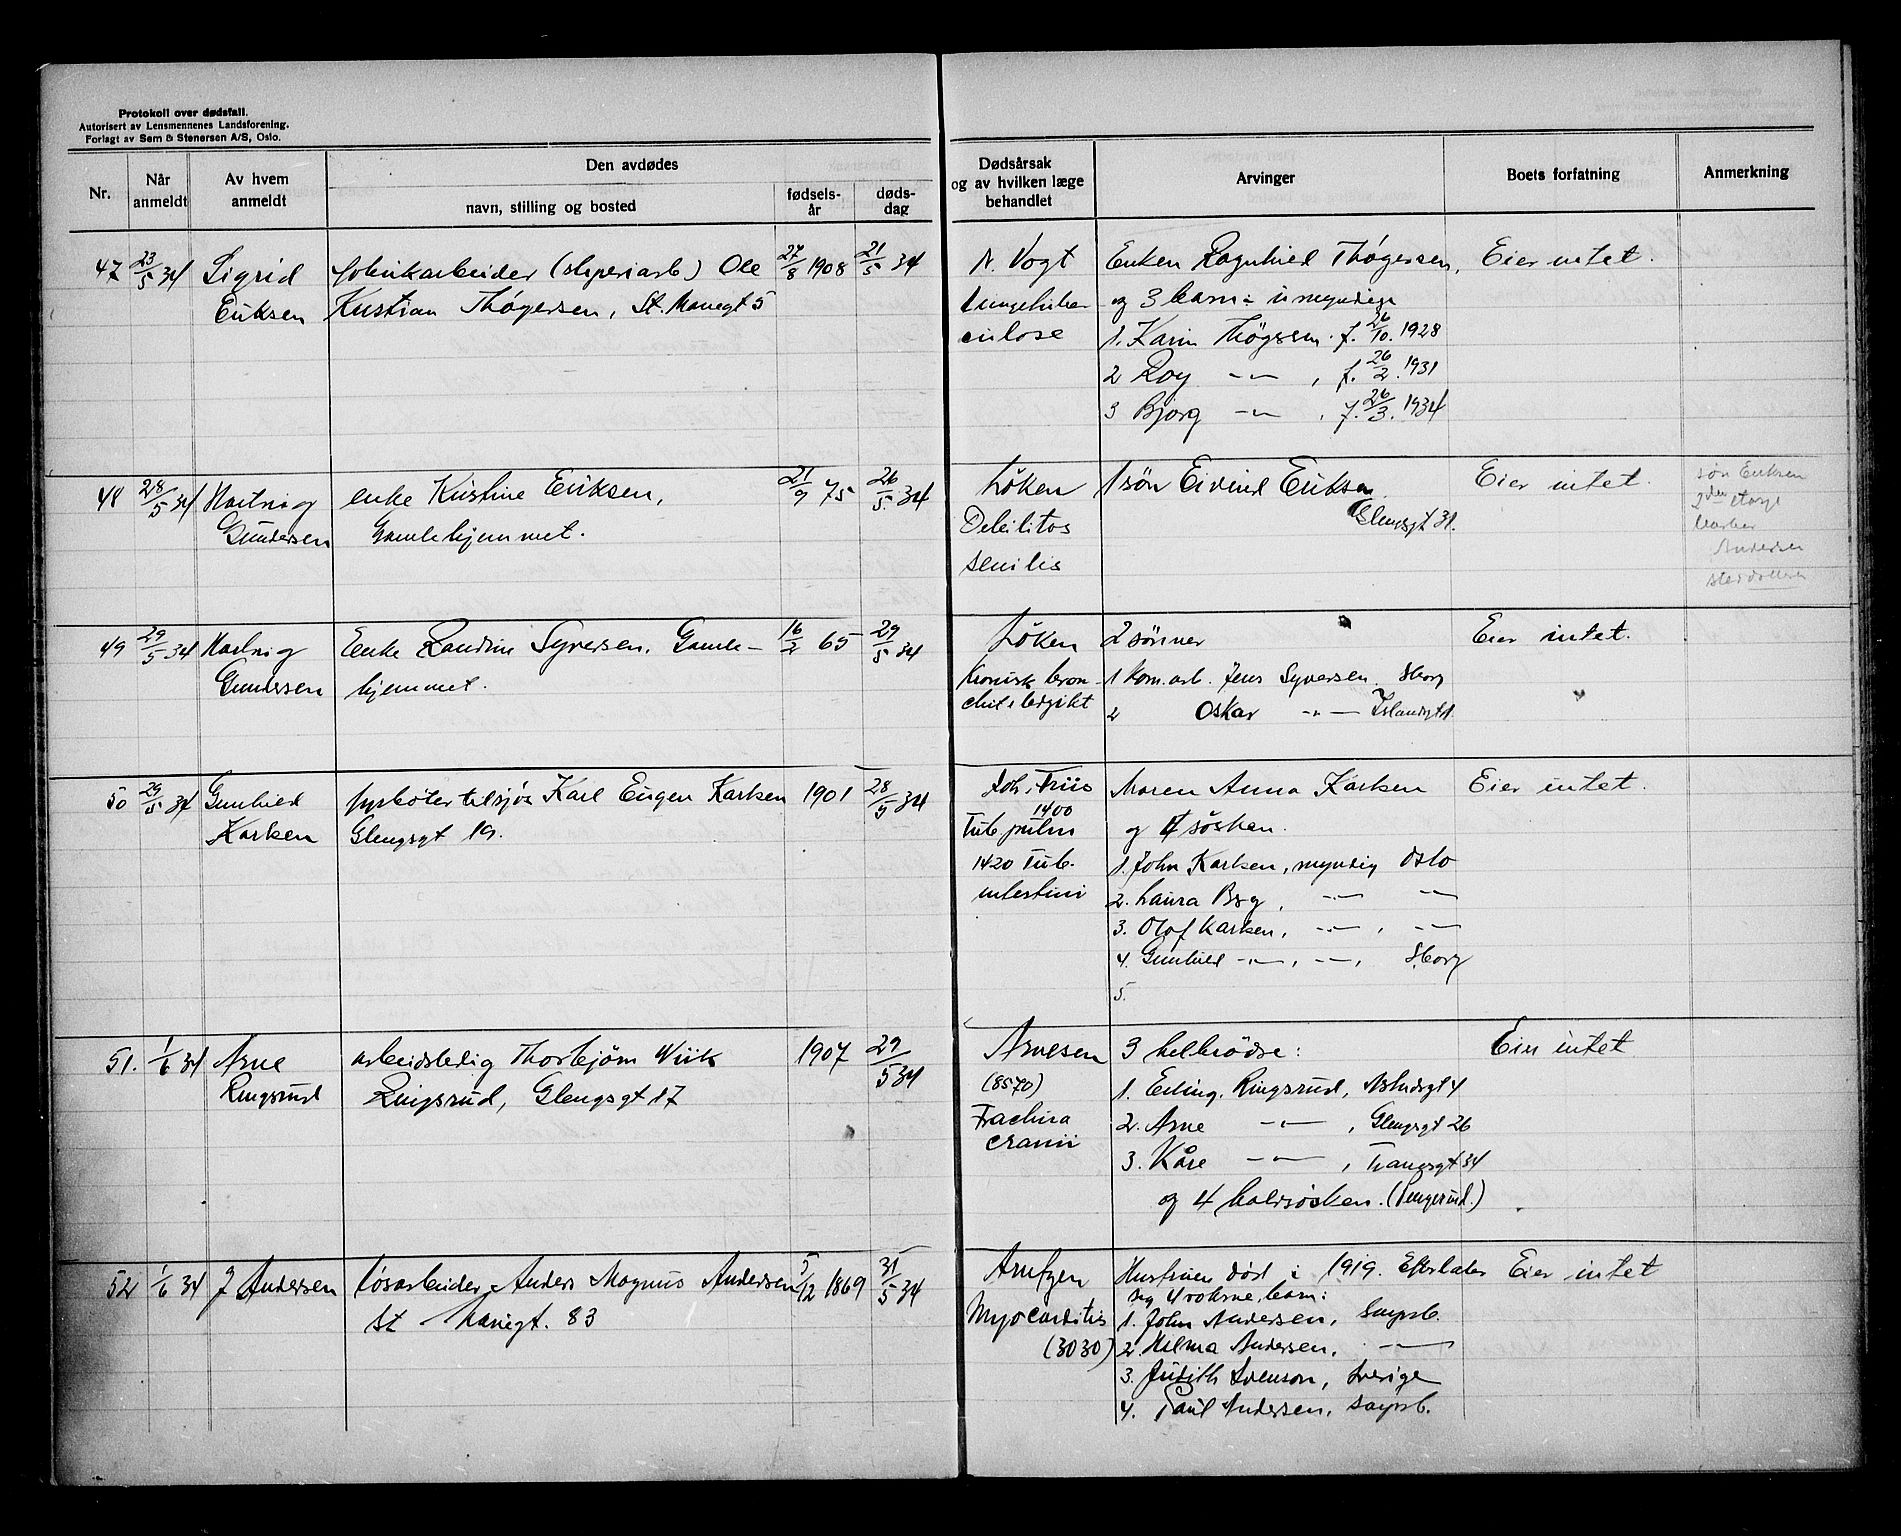 Protokoll over dødsfall.
Autorisert av Lensmennenes Landsforening.
Forlagt av Sem & Stenersen A/S, Oslo.
Nr.
Når anmeldt
Av hvem anmeldt
Den avdødes
navn, stilling og bosted
fødsels-år
døds-dag
Dødsårsak og av hvilken læge behandlet
Arvinger
Boets forfatning
Anmerkning
47 23/5 34 Sigrid fabrikarbeider (sliperiarb) Ole 27/8 1908 21/5 34
Eriksen Kristian Thøgersen, St. Mariegt 5
N. Vogt Enken Ragnhild Thøgersen, Eier intet.
Lungetuber og 3 barn = umyndige
culose 1. Karin Thøgersen f. 26/10. 1928
2 Roy -"- , f. 26/2. 1931
3 Bjorg -"- , f. 26/3. 1934
48 28/5 34 Martnig enke Kristine Eriksen, 21/9 75 26/5 34
Gundersen Gamlehjemmet.
Løken 1 søn Eivind Eriksen Eier intet.
Debilitas Glengsgt 31.
senilis
søn Eriksen
2den etasje
Andersen
49 29/5 34 Martnig Enke Randine Syversen, Gamle- 16/2 65 29/5 34
Gundersen hjemmet.
Løken 2 sønner Eier intet.
kronisk bron- 1 kom. arb. Jens Syversen, Sborg
chit ledgikt 2 Oskar -"- Islandsgt 1
50 29/5 34 Gunhild fyrbøter tilsjøs Karl Eugen Karlsen 1901 28/5 34
Karlsen Glengsgt 19.
Joh. Friis Maren Anna Karlsen Eier intet.
1400
Tub pulm og 4 søsken.
1420 Tub. 1. John Karlsen, myndig Oslo
intestini 2. Laura Berg, -"- -"-
3. Olaf Karlsen, -"-, -"-
4. Gunhild -"-, -"-, Sborg
5.
51. 1/6 34 Arne arbeidsledig Thorbjørn Wiik 1907 29/5 34
Ringsrud Ringsrud, Glengsgt 17
Arnesen 3 helbrødre: Eier intet
(8570) 1. Erling Ringsrud, Astridsgt 4
Fractura 2. Arne -"- , Glengsgt 26
cranii 3. Kåre -"- , Tranesgt 34
og 4 halvsøsken. (Ringsrud.)
52 1/6 34 J Andersen løsarbeider Anders Magnus Andersen 5/12 1869 31/5 34
St Mariegt. 83
Arnfzen Hustruen død i 1919. Efterlater Eier intet
seg 4 voksne barn:
Myocarditis 1. John Andersen, Sarpsb.
(3030) 2. Hilma Andersen, -"-
3. Judith Svenson, Sverige
4. Paul Andersen, Sarpsb.